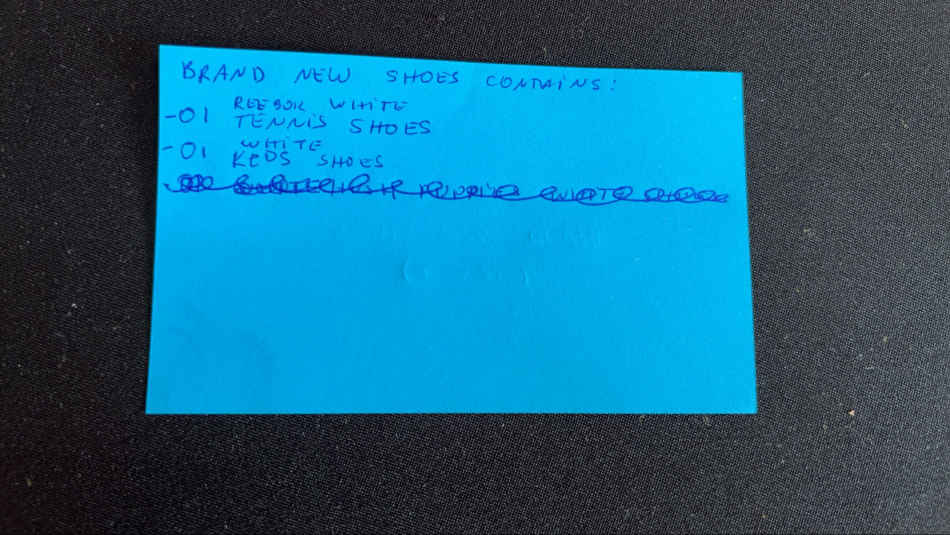 BRAND NEW SHOES CONTAINS:
-01 REEBOK WHITE
TENNIS SHOES
-01 WHITE
KEDS SHOES